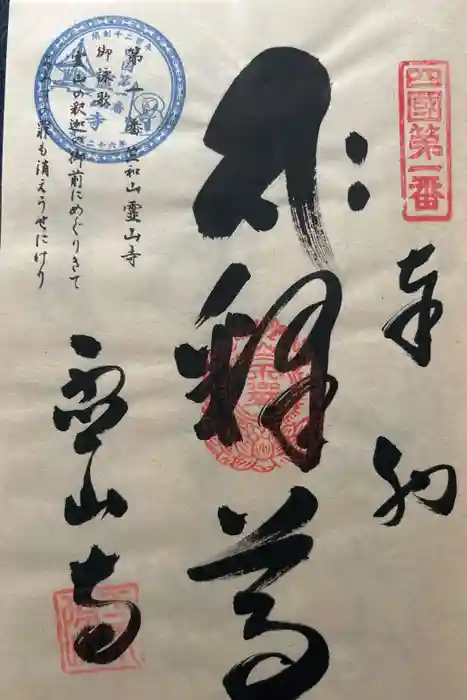 四國第一番
奉納
釋尊
霊山寺
第一番 竺和山霊山寺
御詠歌
霊山の釈迦の御前にめぐりきて
よろずの罪も消えうせにけり